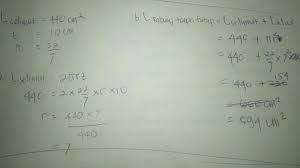 L selimut = 440 cm²
t = 10 cm
π = 22/7
a. L selimut = 2πrt
440 = 2 × 22/7 × r × 10
r = 440 × 7 / 440
= 7
b. L tabung tanpa tutup = L selimut + L alas
= 440 + πr²
= 440 + 22/7 × 7²
= 440 + 154
= 594 cm²